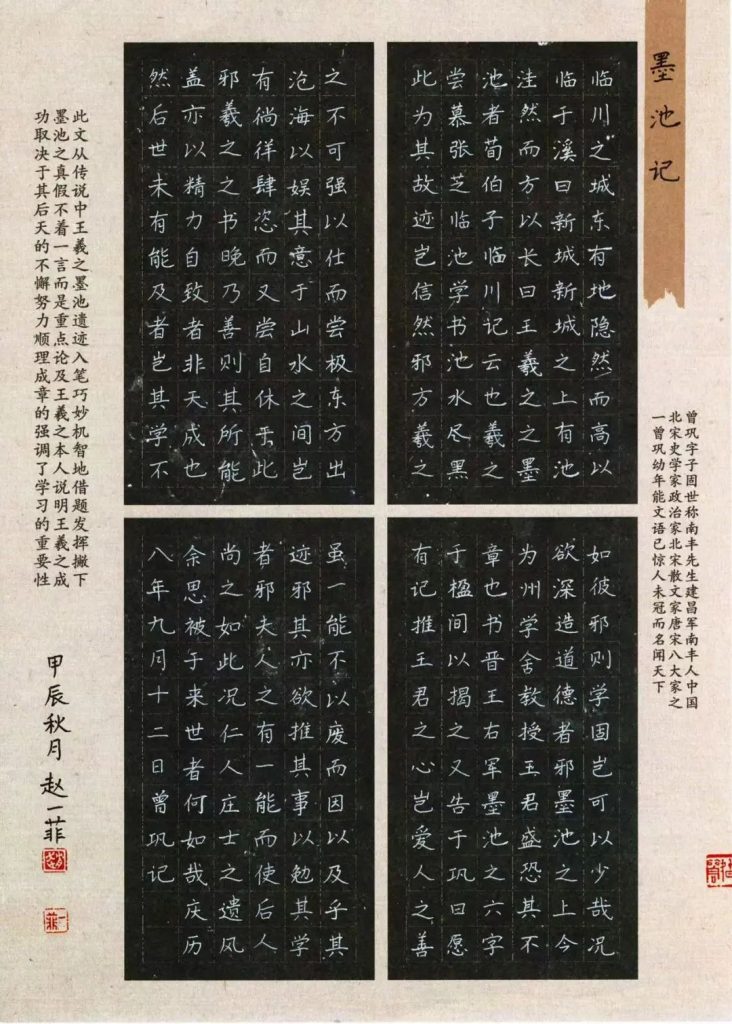 墨池记
曾巩字子固世称南丰先生建昌军南丰人中国
北宋史学家政治家北宋散文家唐宋八大家之
一曾巩幼年能文语已惊人未冠而名闻天下
临川之城东有地隐然而高以
临于溪曰新城新城之上有池
洼然而方以长曰王羲之之墨
池者荀伯子临川记云也羲之
尝慕张芝临池学书池水尽黑
此为其故迹岂信然邪方羲之
之不可强以仕而尝极东方出
沧海以娱其意于山水之间岂
有徜徉肆恣而又尝自休于此
邪羲之之书晚乃善则其所能
盖亦以精力自致者非天成也
然后世未有能及者岂其学不
如彼邪则学固岂可以少哉况
欲深造道德者邪墨池之上今
为州学舍教授王君盛恐其不
章也书晋王右军墨池之六字
于楹间以揭之又告于巩曰愿
有记推王君之心岂爱人之善
虽一能不以废而因以及乎其
迹邪其亦欲推其事以勉其学
者邪夫人之有一能而使后人
尚之如此况仁人庄士之遗风
余思被于来世者何如哉庆历
八年九月十二日曾巩记
此文从传说中王羲之墨池遗迹入笔巧妙机智地借题发挥撇下
墨池之真假不着一言而是重点论及王羲之本人说明王羲之成
功取决于其后天的不懈努力顺理成章的强调了学习的重要性
甲辰秋月赵一菲
一菲